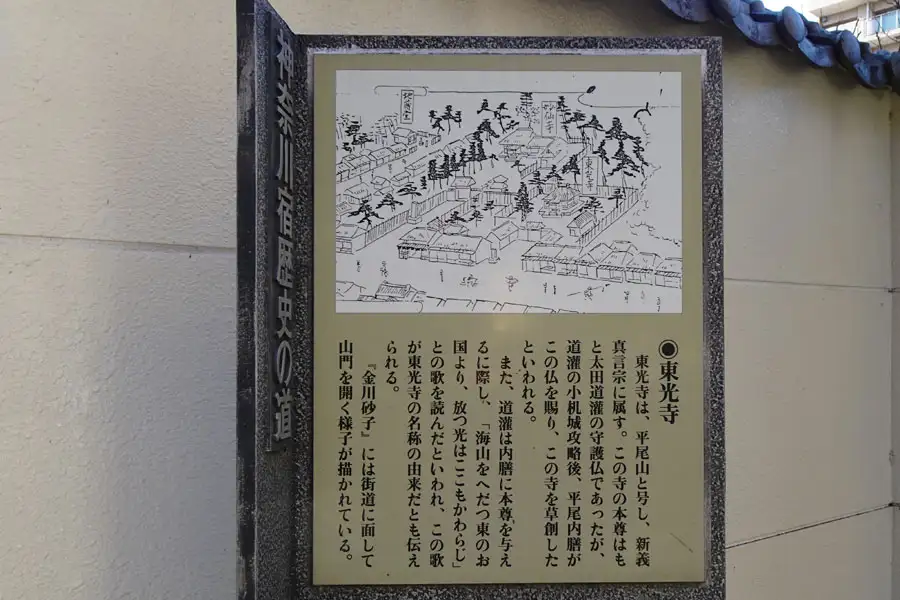 神奈川宿歴史の道
●東光寺
東光寺は、平尾山と号し、新義
真言宗に属す。この寺の本尊はも
と太田道灌の守護仏であったが、
道灌の小机城攻略後、平尾内膳が
この仏を賜り、この寺を草創した
といわれる。
また、道灌は内膳に本尊を与え
るに際し、「海山をへだつ東のお
国より、放つ光はここもかわらじ」
との歌を読んだといわれ、この歌
が東光寺の名称の由来だとも伝え
られる。
『金川砂子』には街道に面して
山門を開く様子が描かれている。